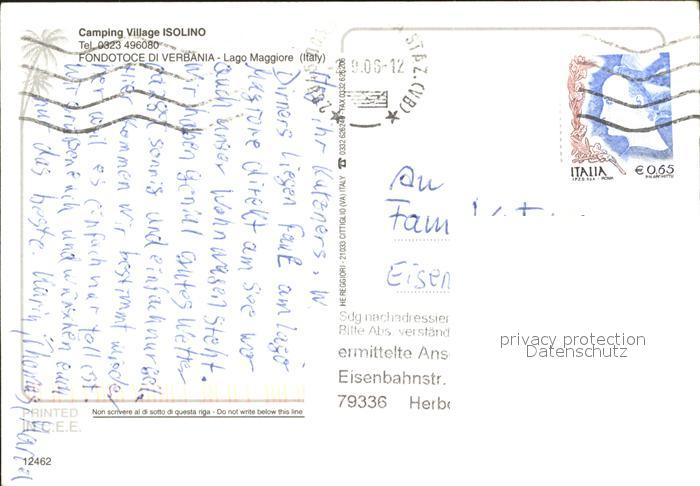 Camping Village ISOLINO
Tel. 0323 496080
FONDOTOCE DI VERBANIA - Lago Maggiore (Italy)
ihr Kutzners, W
liegen faul am Lago
direkt am See wo
auch unser Wohnwagen steht.
Wir haben genial gutes Wetter
und einfach nur
hier kommen wir bestimmt wieder
her weil es einfach nur toll ist.
Wir grüßen euch und wünschen euch
nur das beste. Karin, Thomas, Marcel
PRINTED
IN C.E.E.
Non scrivere al di sotto di questa riga - Do not write below this line
12462
HE REGGIORI - 21033 CITTIGLIO (VA) ITALY ☎ 0332 626249 FAX 0332 626206
9.06-12
(VB)
ITALIA
€ 0,65
I.P.Z.S. S.p.A. - ROMA
An
Fam
Eisen
Sdg nachadressier
Bitte Abs. verständ
ermittelte Ans
Eisenbahnstr.
79336 Herbo
privacy protection
Datenschutz